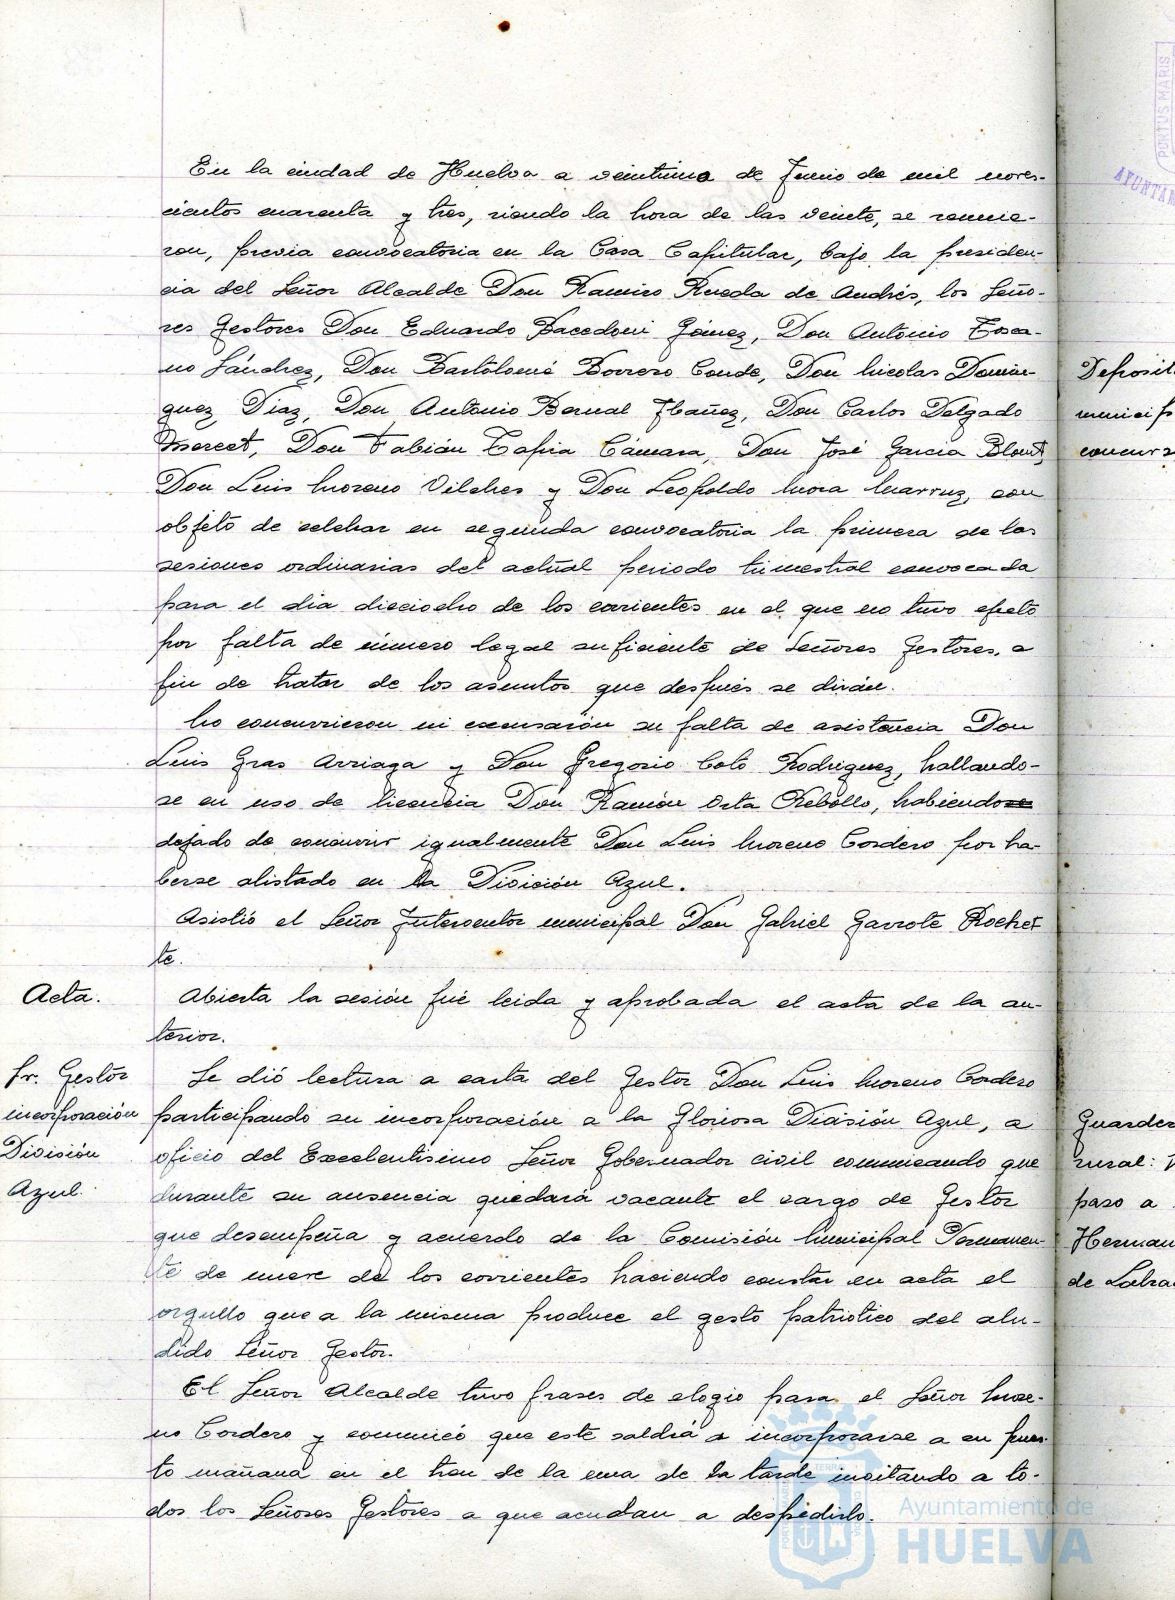 En la ciudad de Huelva a veintiuno de Junio de mil nove-
cientos cuarenta y tres, siendo la hora de las veinte, se reunie-
ron, previa convocatoria en la Casa Capitular, bajo la presiden-
cia del Señor Alcalde Don Ramiro Rueda de Andrés, los Seño-
res Gestores Don Eduardo Bacedoni Gómez, Don Antonio Tosca-
no Sánchez, Don Bartolomé Borrero Conde, Don Nicolas Domín-
guez Diaz, Don Antonio Bernal Ibañez, Don Carlos Delgado
Mercet, Don Fabián Tapia Cámara, Don José Garcia Blount,
Don Luis Moreno Vilches y Don Leopoldo Mora Marruz, con
objeto de celebrar en segunda convocatoria la primera de las
sesiones ordinarias del actual periodo trimestral convocada
para el dia dieciocho de los corrientes en el que no tuvo efecto
por falta de número legal suficiente de Señores Gestores, a
fin de tratar de los asuntos que después se dirán.
No concurrieron ni excusarón su falta de asistencia Don
Luis Gras Arriaga y Don Gregorio Coto Rodriguez, hallando-
se en uso de licencia Don Ramón Orta Rebollo, habiendose
dejado de concurrir igualmente Don Luis Moreno Cordero por ha-
berse alistado en la División Azul.
Asistió el Señor Interventor municipal Don Gabriel Garrote Rochet-
te.
Acta.
Abierta la sesión fué leida y aprobada el acta de la an-
terior.
Sr. Gestor
incorporación
División
Azul.
Se dió lectura a carta del Gestor Don Luis Moreno Cordero
participando su incorporación a la Gloriosa División Azul, a
oficio del Excelentisimo Señor Gobernador civil comunicando que
durante su ausencia quedará vacante el cargo de Gestor
que desempeña y acuerdo de la Comisión Municipal Permanen-
te de nueve de los corrientes haciendo constar en acta el
orgullo que a la misma produce el gesto patriotico del alu-
dido Señor Gestor.
El Señor Alcalde tuvo frases de elogio para el Señor More-
no Cordero y comunicó que este saldrá a incorporarse a su pues-
to mañana en el tren de la una de la tarde invitando a to-
dos los Señores Gestores a que acudan a despedirlo.
Deposit
municip
concurs
Guarder
rural:
paso a
Herman
de Labra
PORTUS MARIS
AYUNTAM
Ayuntamiento de
HUELVA